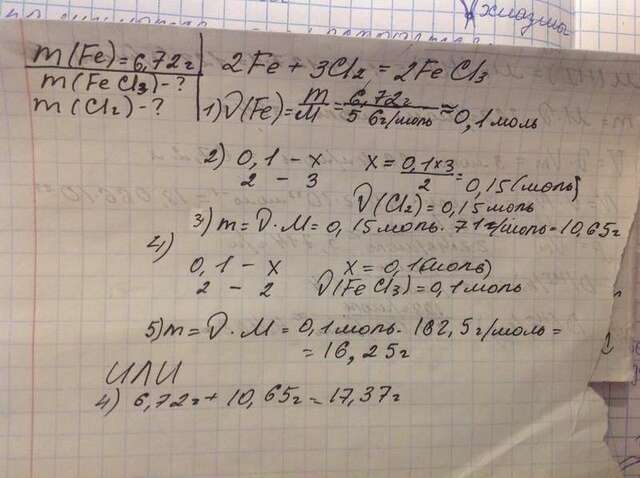 хлазмы
m(Fe)=6,72г
m(FeCl3)-?
m(Cl2)-?
2Fe + 3Cl2 = 2FeCl3
1) ν(Fe) = m/M = 6,72г/56г/моль ≈ 0,1моль
2) 0,1 - x x = 0,1×3/2 = 0,15(моль)
2 - 3
ν(Cl2) = 0,15моль
3) m = ν·M = 0,15моль·71г/моль = 10,65г
4)
0,1 - x x = 0,1(моль)
2 - 2 ν(FeCl3) = 0,1моль
5) m = ν·M = 0,1моль·162,5г/моль =
= 16,25г
ИЛИ
4) 6,72г + 10,65г = 17,37г